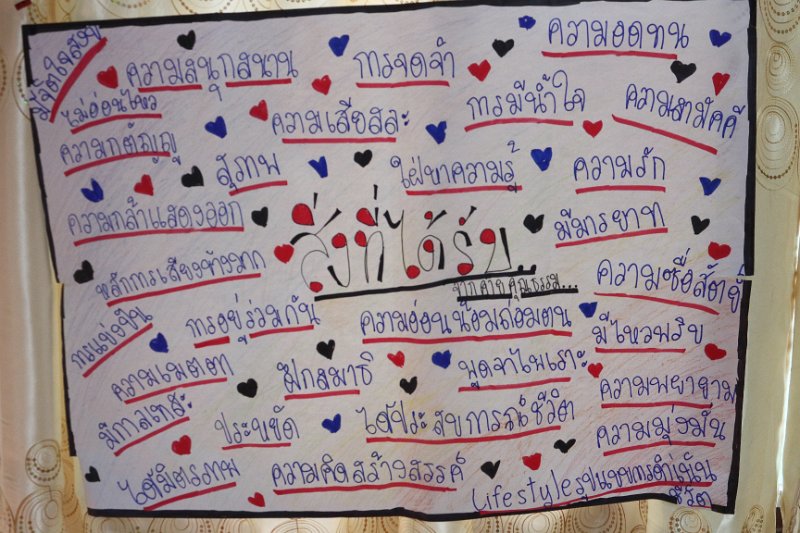 มีจิตใจสงบ
ไม่อ่อนไหว
ความสนุกสนาน
การจดจำ
ความอดทน
ความกตัญญู
ความเสียสละ
การมีน้ำใจ
ความสามัคคี
สุภาพ
ใฝ่หาความรู้
ความรัก
ความกล้าแสดงออก
มีมารยาท
สิ่งที่ได้รับ
จากค่ายคุณธรรม...
หลักการเสียงข้างมาก
ความซื่อสัตย์
การแข่งขัน
การอยู่ร่วมกัน
ความอ่อนน้อมถ่อมตน
มีไหวพริบ
ความเมตตา
ฝึกสมาธิ
พูดจาไพเราะ
ความพยายาม
มีกาลเทศะ
ประหยัด
ได้ประสบการณ์ชีวิต
ความมุ่งมั่น
ได้มิตรภาพ
ความคิดสร้างสรรค์
Lifestyleรูปแบบการดำเนิน
ชีวิต